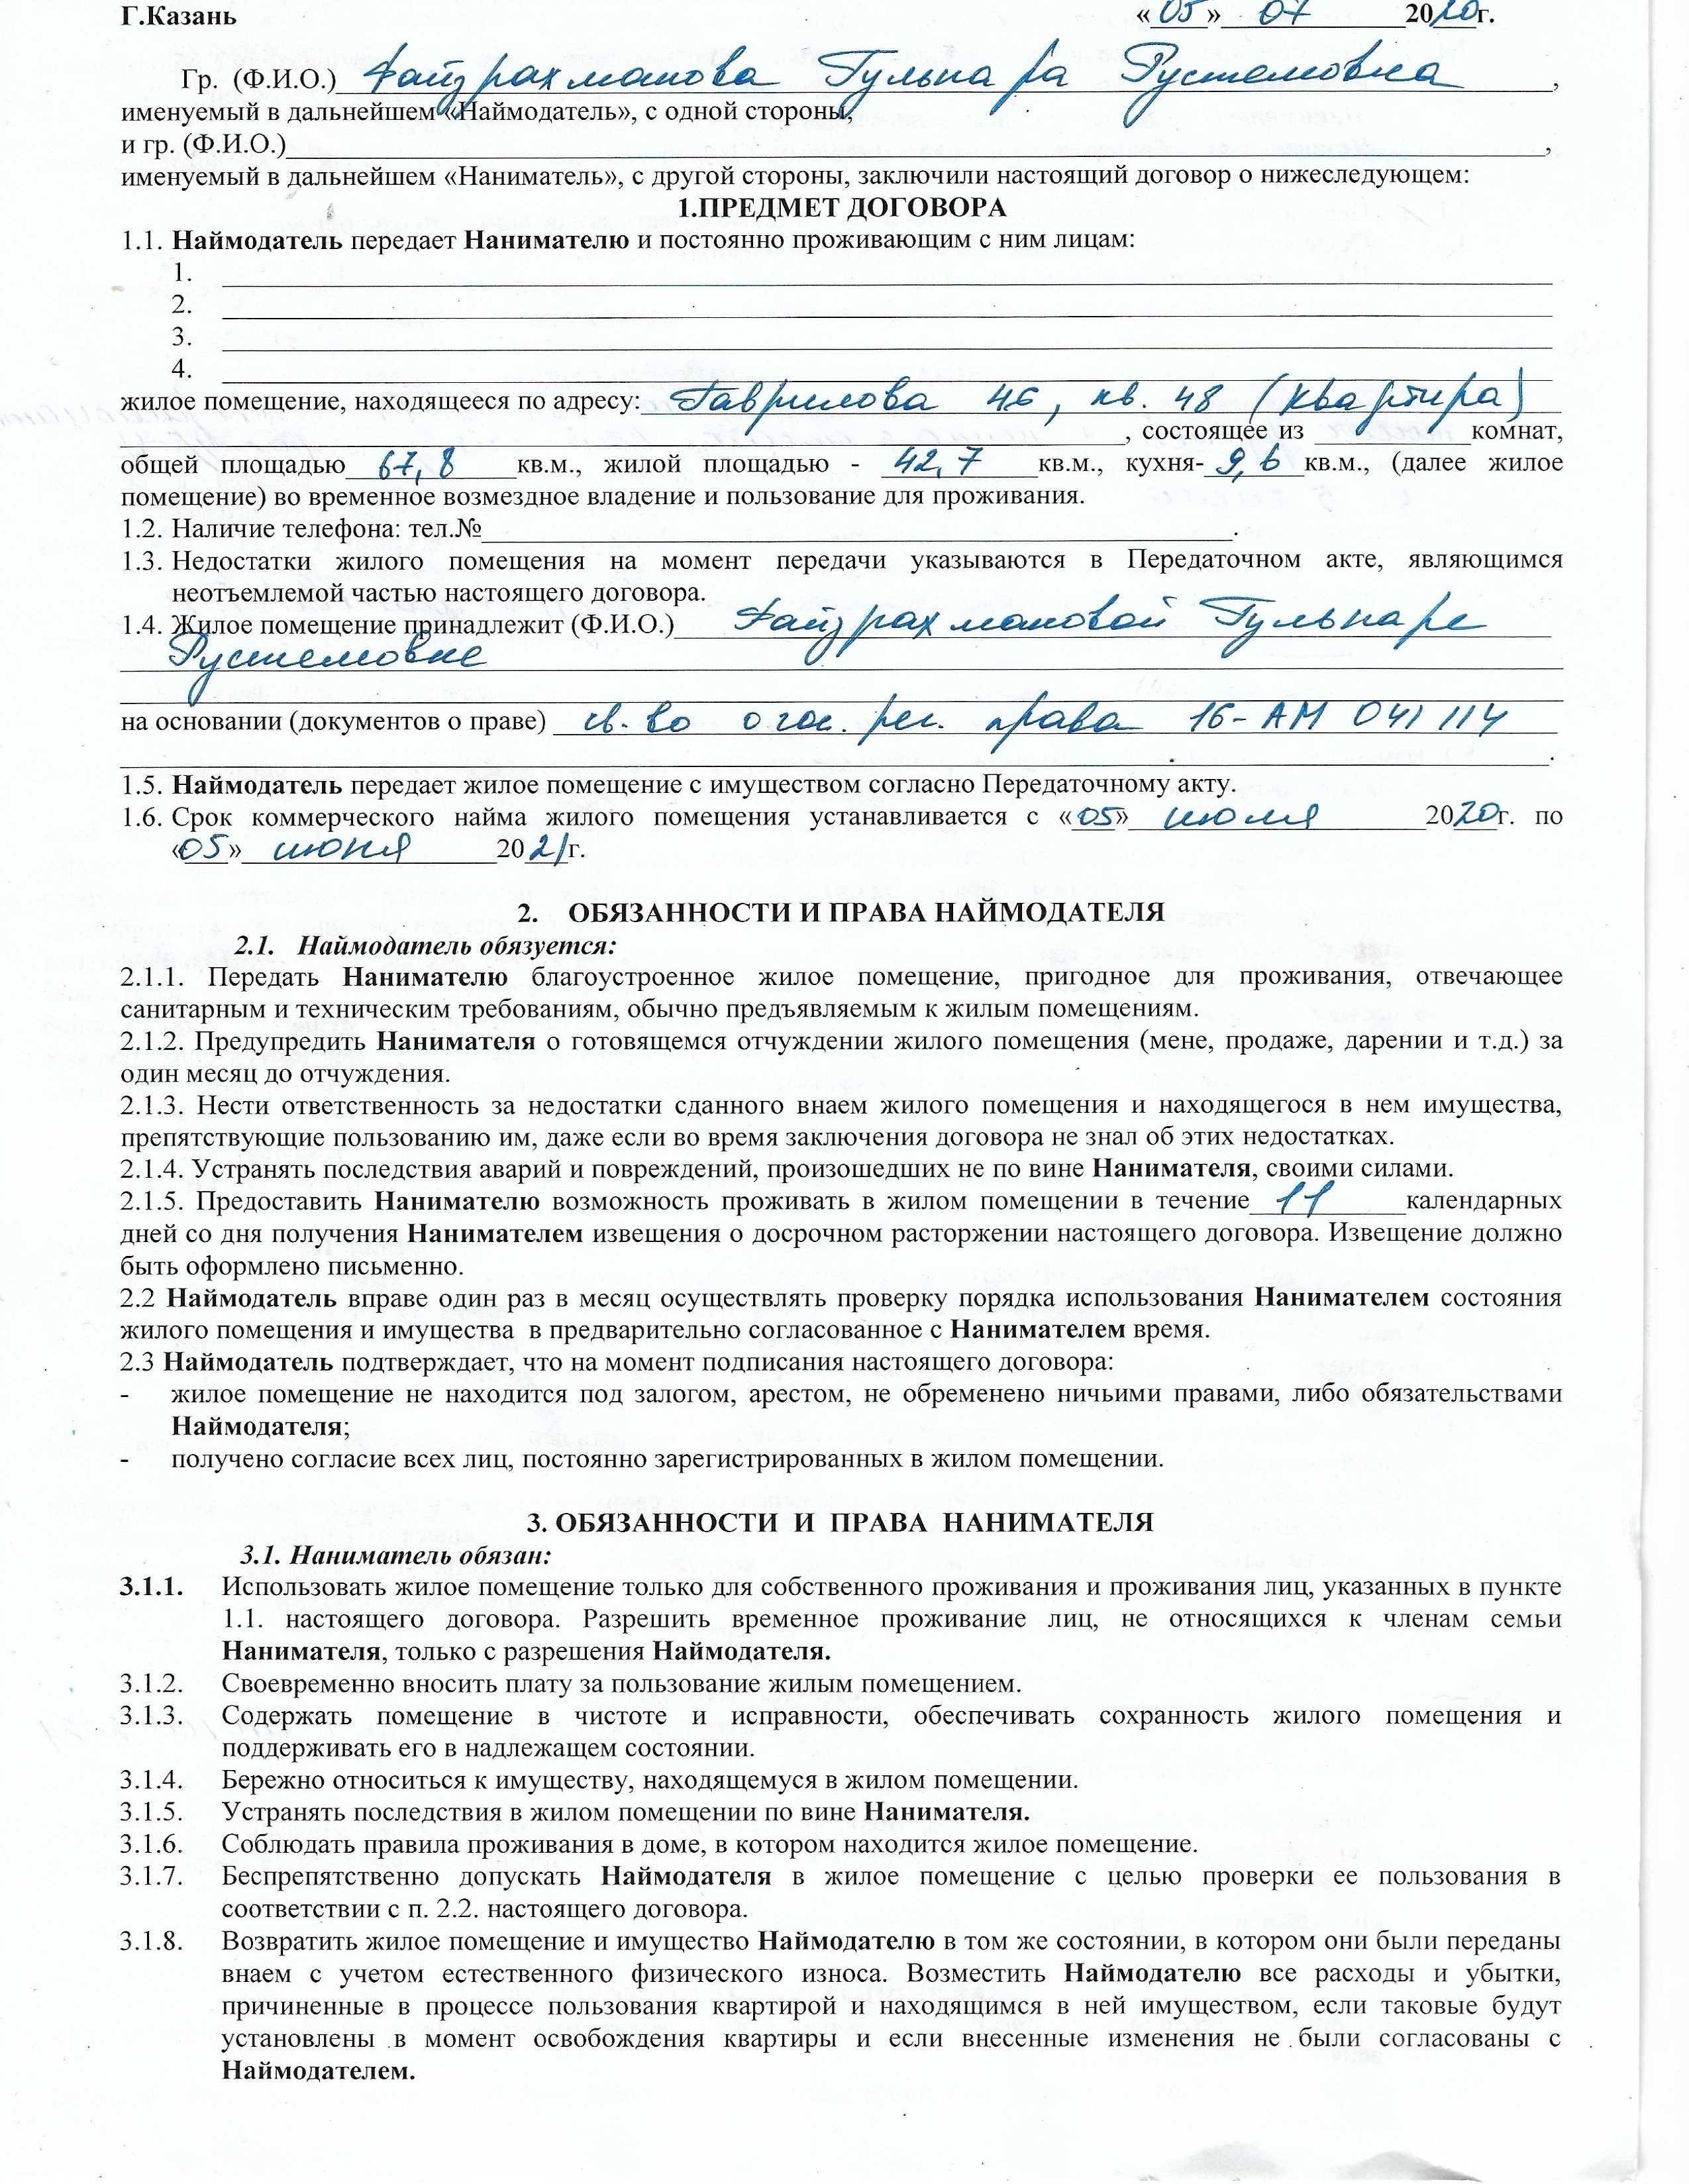 Г.Казань «05» 07 2020г.
Гр. (Ф.И.О.) Файзрахманова Гульнара Рустемовна,
именуемый в дальнейшем «Наймодатель», с одной стороны,
и гр. (Ф.И.О.)____,
именуемый в дальнейшем «Наниматель», с другой стороны, заключили настоящий договор о нижеследующем:
1.ПРЕДМЕТ ДОГОВОРА
1.1. Наймодатель передает Нанимателю и постоянно проживающим с ним лицам:
1.
2.
3.
4.
жилое помещение, находящееся по адресу: Гаврилова 46, кв. 48 (квартира)
____, состоящее из ____комнат,
общей площадью 67,8 кв.м., жилой площадью - 42,7 кв.м., кухня- 9,6 кв.м., (далее жилое
помещение) во временное возмездное владение и пользование для проживания.
1.2. Наличие телефона: тел.№____.
1.3. Недостатки жилого помещения на момент передачи указываются в Передаточном акте, являющимся
неотъемлемой частью настоящего договора.
1.4. Жилое помещение принадлежит (Ф.И.О.) Файзрахмановой Гульнаре
Рустемовне
на основании (документов о праве) св.во о гос. рег. права 16-АМ 041114
1.5. Наймодатель передает жилое помещение с имуществом согласно Передаточному акту.
1.6. Срок коммерческого найма жилого помещения устанавливается с «05» июля 2020г. по
«05» июня 2021г.
2. ОБЯЗАННОСТИ И ПРАВА НАЙМОДАТЕЛЯ
2.1. Наймодатель обязуется:
2.1.1. Передать Нанимателю благоустроенное жилое помещение, пригодное для проживания, отвечающее
санитарным и техническим требованиям, обычно предъявляемым к жилым помещениям.
2.1.2. Предупредить Нанимателя о готовящемся отчуждении жилого помещения (мене, продаже, дарении и т.д.) за
один месяц до отчуждения.
2.1.3. Нести ответственность за недостатки сданного внаем жилого помещения и находящегося в нем имущества,
препятствующие пользованию им, даже если во время заключения договора не знал об этих недостатках.
2.1.4. Устранять последствия аварий и повреждений, произошедших не по вине Нанимателя, своими силами.
2.1.5. Предоставить Нанимателю возможность проживать в жилом помещении в течение 11 календарных
дней со дня получения Нанимателем извещения о досрочном расторжении настоящего договора. Извещение должно
быть оформлено письменно.
2.2 Наймодатель вправе один раз в месяц осуществлять проверку порядка использования Нанимателем состояния
жилого помещения и имущества в предварительно согласованное с Нанимателем время.
2.3 Наймодатель подтверждает, что на момент подписания настоящего договора:
- жилое помещение не находится под залогом, арестом, не обременено ничьими правами, либо обязательствами
Наймодателя;
- получено согласие всех лиц, постоянно зарегистрированных в жилом помещении.
3. ОБЯЗАННОСТИ И ПРАВА НАНИМАТЕЛЯ
3.1. Наниматель обязан:
3.1.1. Использовать жилое помещение только для собственного проживания и проживания лиц, указанных в пункте
1.1. настоящего договора. Разрешить временное проживание лиц, не относящихся к членам семьи
Нанимателя, только с разрешения Наймодателя.
3.1.2. Своевременно вносить плату за пользование жилым помещением.
3.1.3. Содержать помещение в чистоте и исправности, обеспечивать сохранность жилого помещения и
поддерживать его в надлежащем состоянии.
3.1.4. Бережно относиться к имуществу, находящемуся в жилом помещении.
3.1.5. Устранять последствия в жилом помещении по вине Нанимателя.
3.1.6. Соблюдать правила проживания в доме, в котором находится жилое помещение.
3.1.7. Беспрепятственно допускать Наймодателя в жилое помещение с целью проверки ее пользования в
соответствии с п. 2.2. настоящего договора.
3.1.8. Возвратить жилое помещение и имущество Наймодателю в том же состоянии, в котором они были переданы
внаем с учетом естественного физического износа. Возместить Наймодателю все расходы и убытки,
причиненные в процессе пользования квартирой и находящимся в ней имуществом, если таковые будут
установлены в момент освобождения квартиры и если внесенные изменения не были согласованы с
Наймодателем.